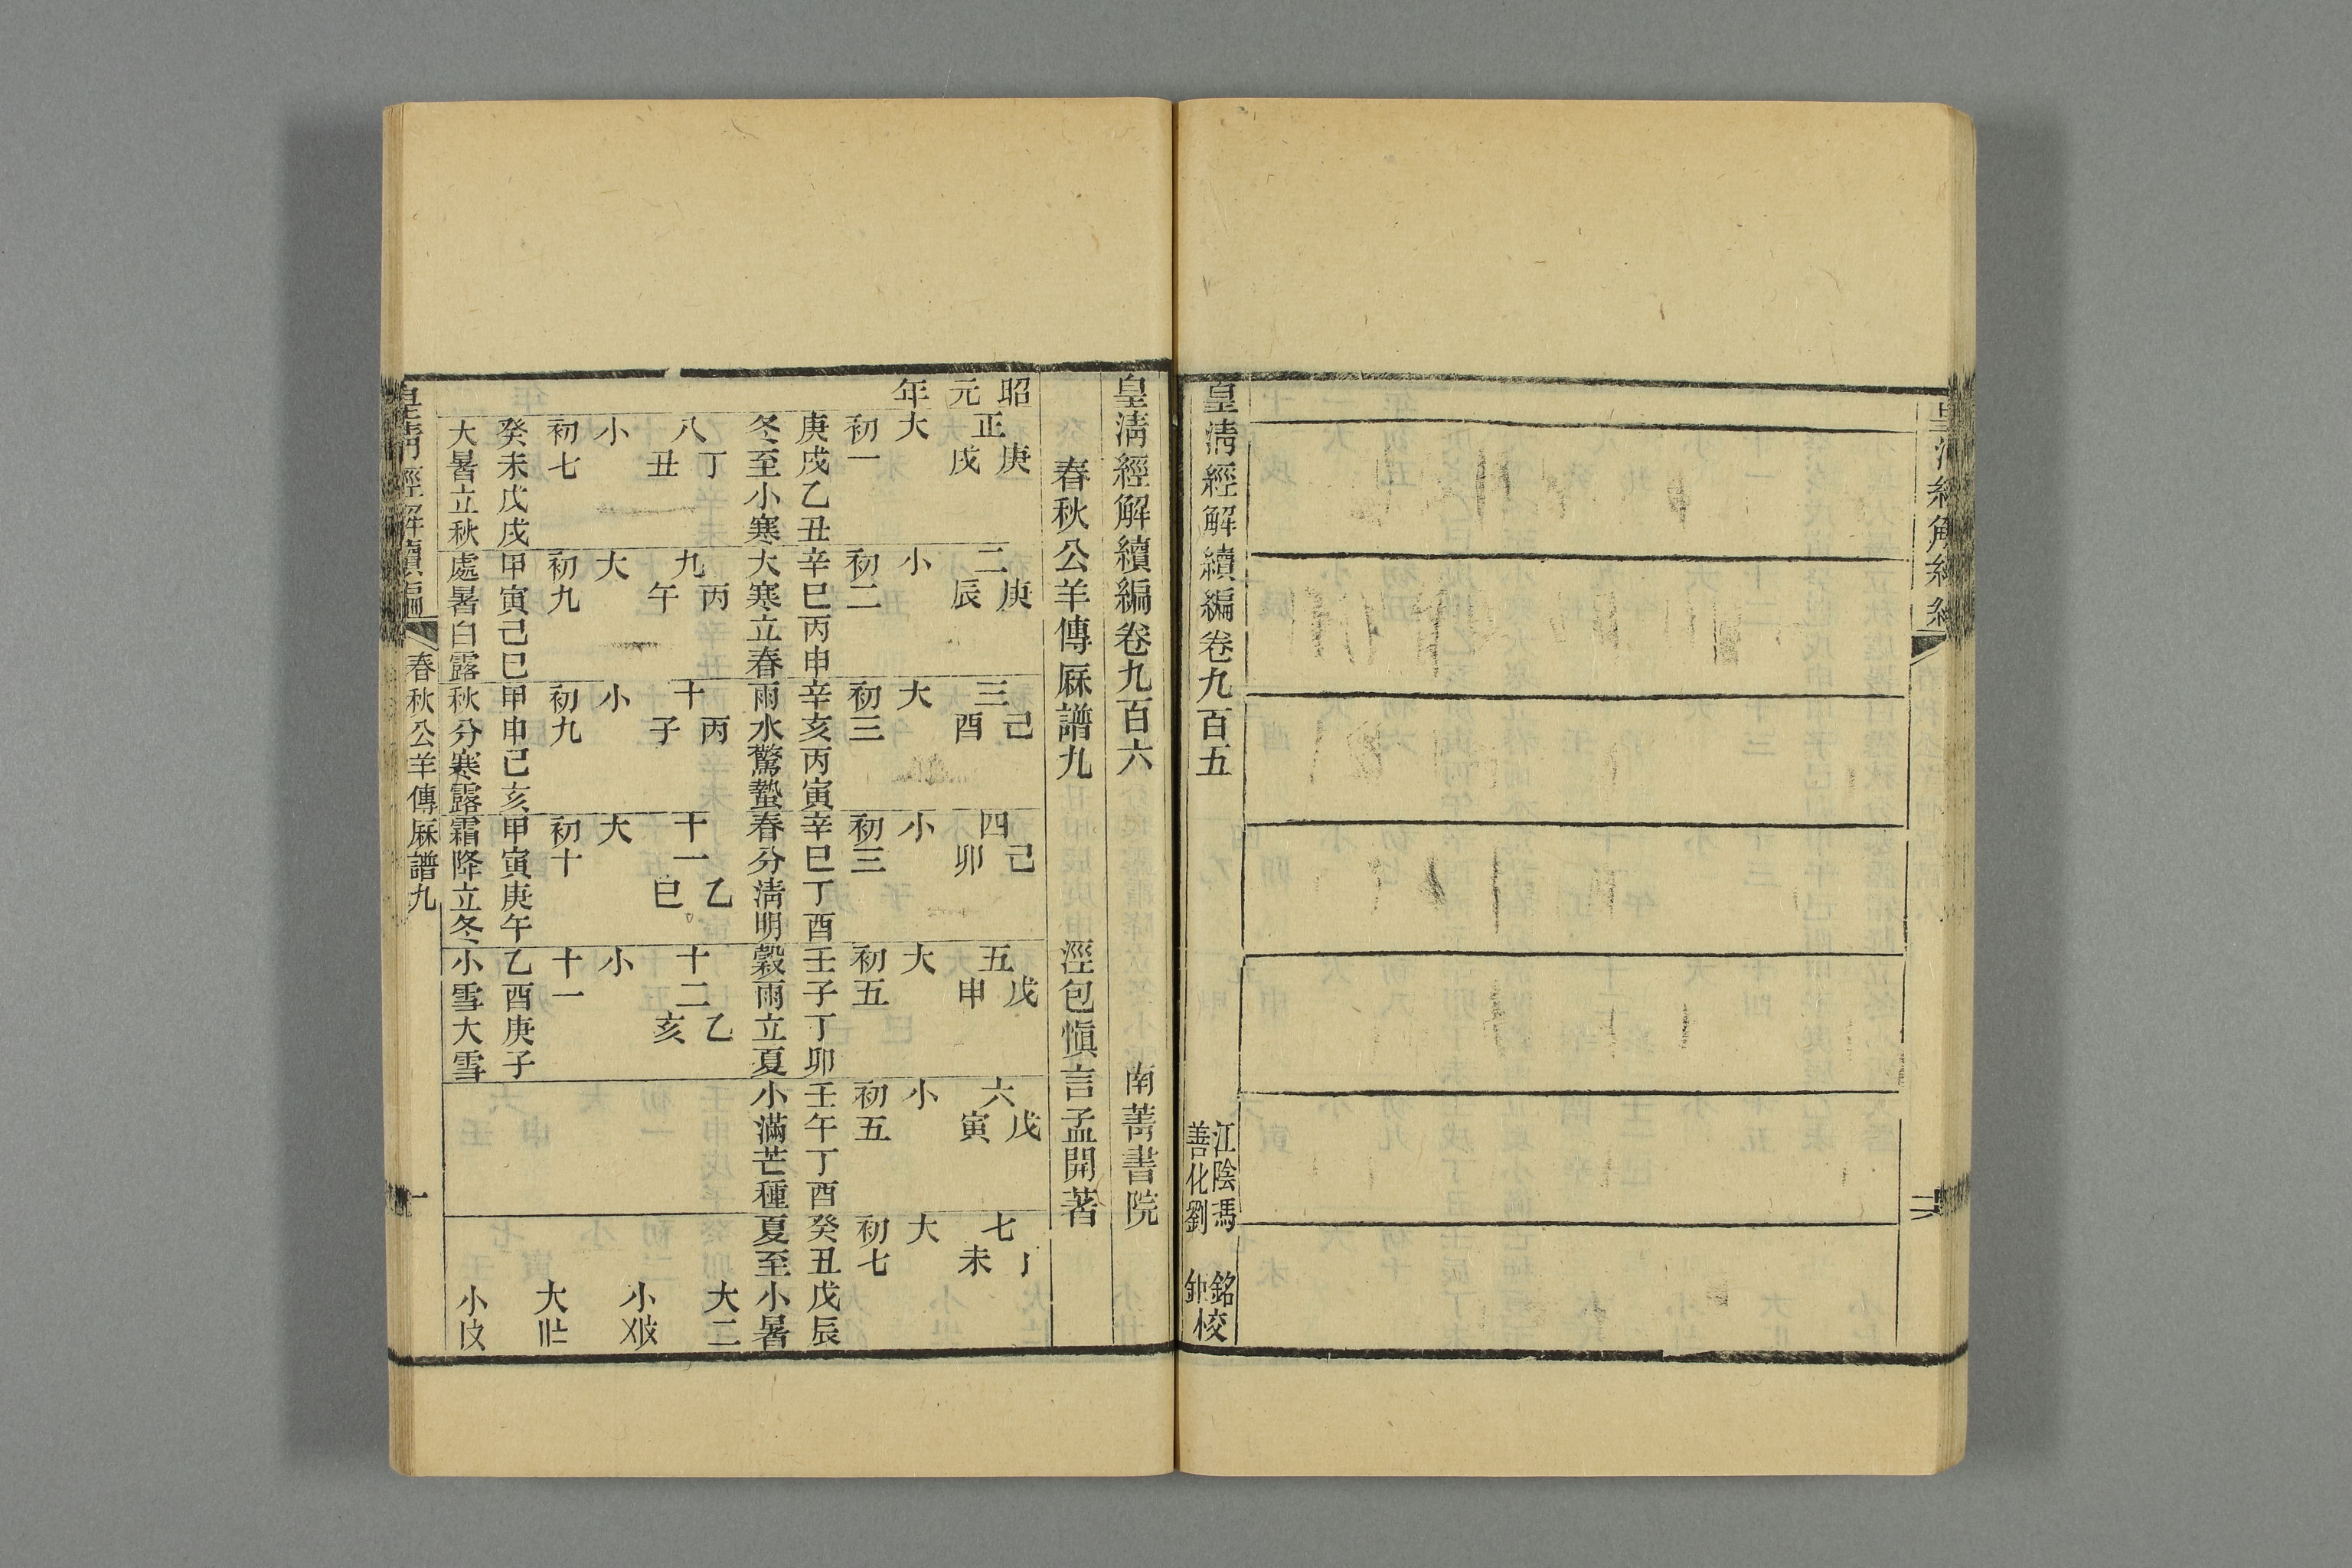 皇清經解續編卷九百五
江陰馮銘
善化劉鉅校
皇清經解續編卷九百六
南菁書院
春秋公羊傳厤譜九
涇包慎言孟開著
昭元年
正
庚戌
大
初一
庚戌乙丑
冬至小寒
二
庚辰
小
初二
辛巳丙申
大寒立春
三
己酉
大
初三
辛亥丙寅
雨水驚蟄
四
己卯
小
初三
辛巳丁酉
春分清明
五
戊申
大
初五
壬子丁卯
穀雨立夏
六
戊寅
小
初五
壬午丁酉
小滿芒種
七
未
大
初七
癸丑戊辰
夏至小暑
八
丁丑
小
初七
癸未戊戌
大暑立秋
九
丙午
大
初九
甲寅己巳
處暑白露
十
丙子
小
初九
甲申己亥
秋分寒露
十一
乙巳
大
初十
甲寅庚午
霜降立冬
十二
乙亥
小
十一
乙酉庚子
小雪大雪
大二
小
大
小
皇清經解續編
春秋公羊傳厤譜九
一